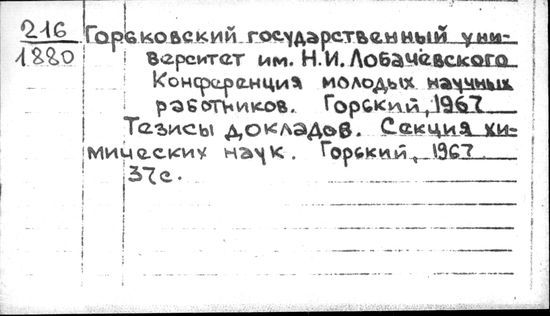 216 Горьковский государственный уни-
1880 верситет им. Н.И. Лобачевского
Конференция молодых научных
работников. Горький, 1967
Тезисы докладов. Секция хи-
мических наук. Горький, 1967
37с.